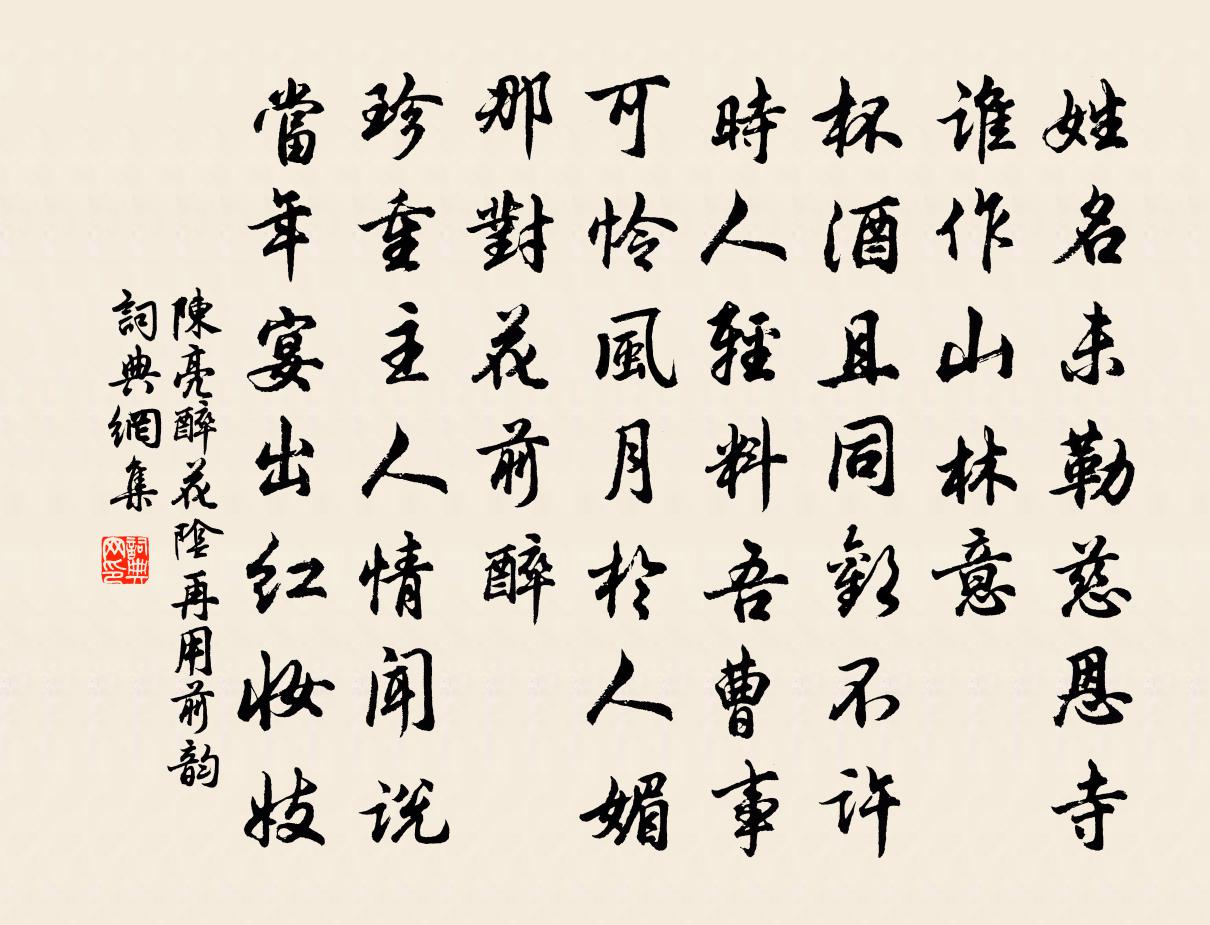 姓名未勒慈恩寺
誰作山林意
杯酒且同歡不許
時人輕料吾曹事
可怜風月於人媚
那對花前醉
珍重主人情聞説
當年宴出紅妝妓
陳亮醉花陰再用前韵
詞典網集
詞典网印